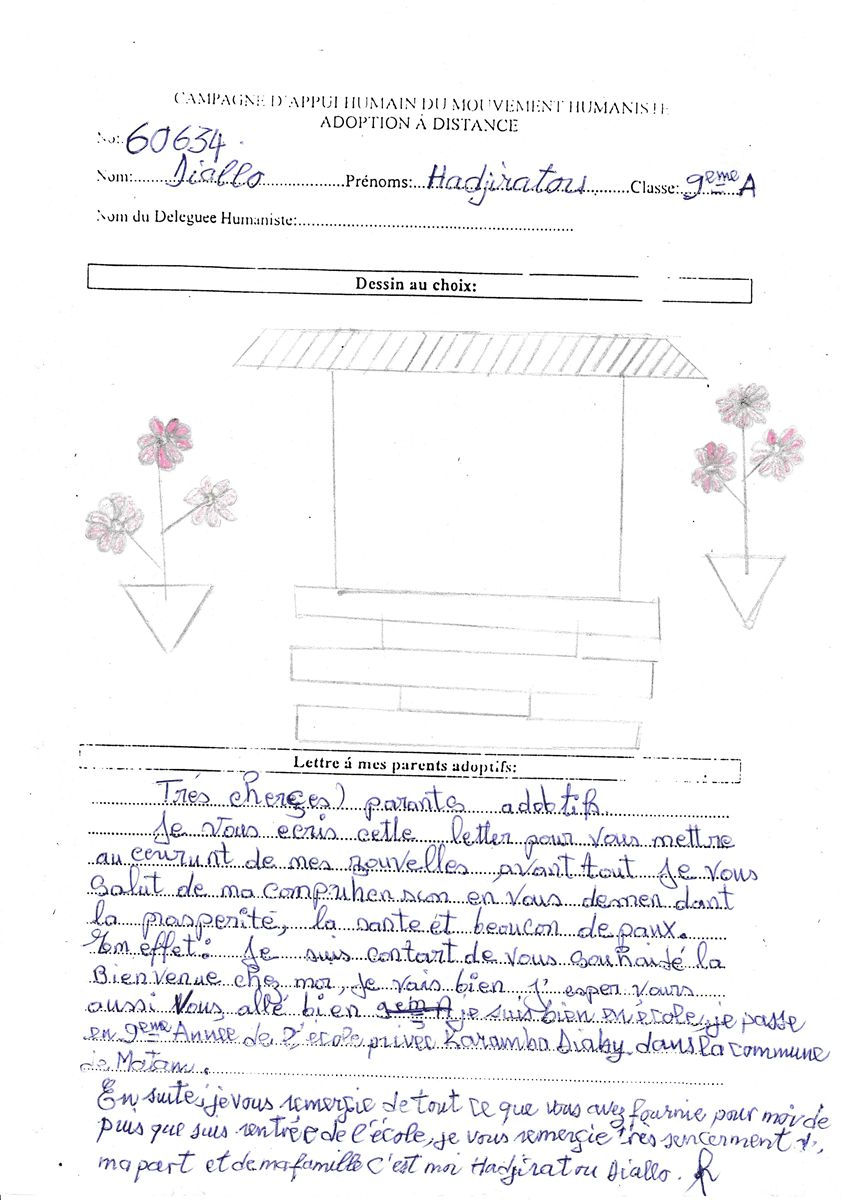 CAMPAGNE D'APPUI HUMAIN DU MOUVEMENT HUMANISTE
ADOPTION Á DISTANCE
No: 60634
Nom: Diallo Prénoms: Hadjiratou Classe: 9eme A
Nom du Deleguee Humaniste:
Dessin au choix:
Lettre á mes parents adoptifs:
Trés cher(es) parants adobtifs
Je vous ecris cette letter pour vous mettre
au courunt de mes nouvelles avant tout Je vous
Salut de ma compruhenson en vous demendant
la prasperité, la sante et beaucon de paux.
En effet: Je suis contart de vous souhaité la
Bienvenue chez moi, Je vais bien J'esper vours
aussi Vous allé bien je suis bien en école, je passe
en 9eme Année de l'école privée Karamba Diaby dans la commune
de Matam.
En suite, je vous remergie de tout ce que vous avez fournie pour moi de
puis que suis rentrée de l'école, je vous remergie trés sencerment
ma part et de ma famille C'est moi Hadjiratou Diallo.